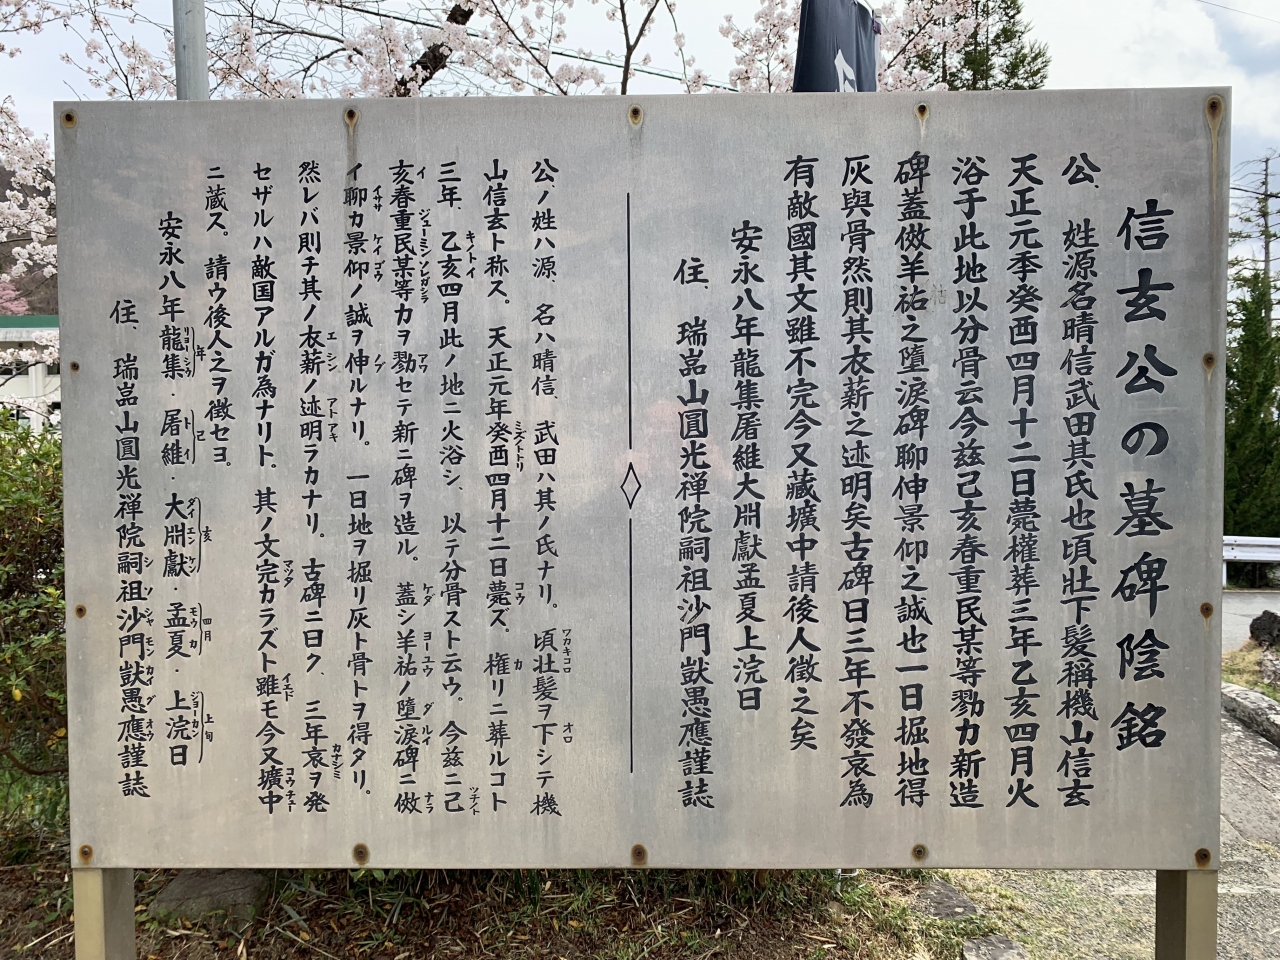 信玄公の墓碑陰銘
公、姓源名晴信武田其氏也頃壯下髮稱機山信玄
天正元季癸酉四月十二日薨權葬三年乙亥四月火
浴于此地以分骨云今茲己亥春重民某等勠力新造
碑蓋倣羊祜之墮淚碑聊伸景仰之誠也一日掘地得
灰與骨然則其衣薪之迹明矣古碑日三年不發哀為
有敵國其文雖不完今又藏壙中請後人徵之矣
安永八年龍集屠維大淵獻孟夏上浣日
住、瑞嵓山圓光禅院嗣祖沙門獃愚應謹誌
公ノ姓ハ源、名ハ晴信、武田ハ其ノ氏ナリ。頃壮髪ヲ下シテ機
山信玄ト称ス。天正元年癸酉四月十二日薨ズ。権リニ葬ルコト
三年、乙亥四月此ノ地ニ火浴シ、以テ分骨スト云ウ。今茲ニ己
亥春重民某等力ヲ勠セテ新ニ碑ヲ造ル。蓋シ羊祐ノ墮淚碑ニ倣
イ聊カ景仰ノ誠ヲ伸ルナリ。一日地ヲ掘リ灰ト骨トヲ得タリ。
然レバ則チ其ノ衣薪ノ迹明ラカナリ。古碑ニ日ク、三年哀ヲ発
セザルハ敵国アルガ為ナリト。其ノ文完カラズト雖モ今又壙中
ニ蔵ス。請ウ後人之ヲ徴セヨ。
安永八年龍集・屠維・大淵獻・孟夏・上浣日
住、瑞嵓山圓光禅院嗣祖沙門獃愚應謹誌